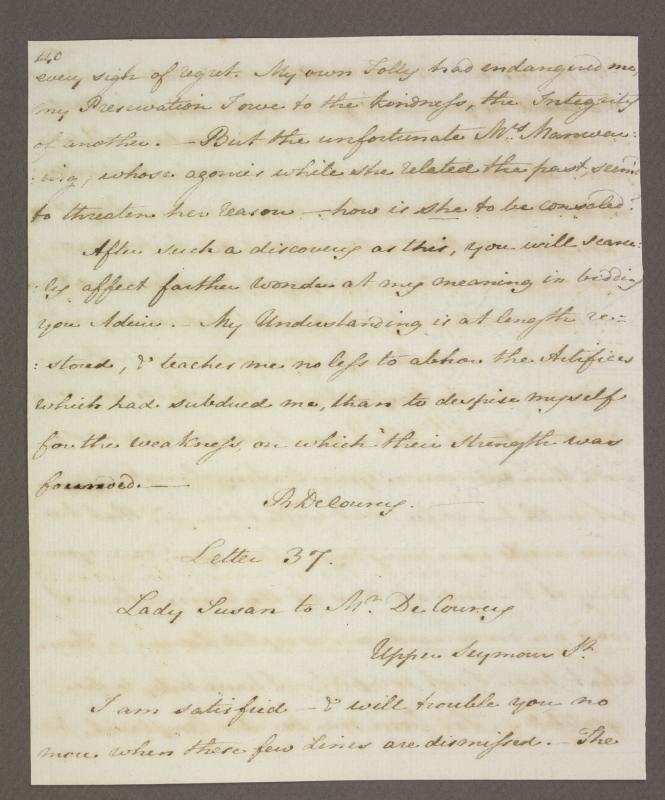 40
every sigh of regret. My own Folly had endangered me,
my Preservation I owe to the kindness, the Integrity
of another. — But the unfortunate Mrs. Manwar:
:ing, whose agonies while she related the past, seem'd
to threaten her reason — how is she to be consoled?
After such a discovery as this, you will scarce:
:ly affect farther wonder at my meaning in bidding
you Adieu. — My Understanding is at length re:
:stored, & teaches me no less to abhor the Artifices
which had subdued me, than to despise myself
for the weakness, on which their strength was
founded. —
R De Courcy.
Letter 37.
Lady Susan to Mr. De Courcy
Upper Seymour St.
I am satisfied — & will trouble you no
more when these few Lines are dismissed. — The